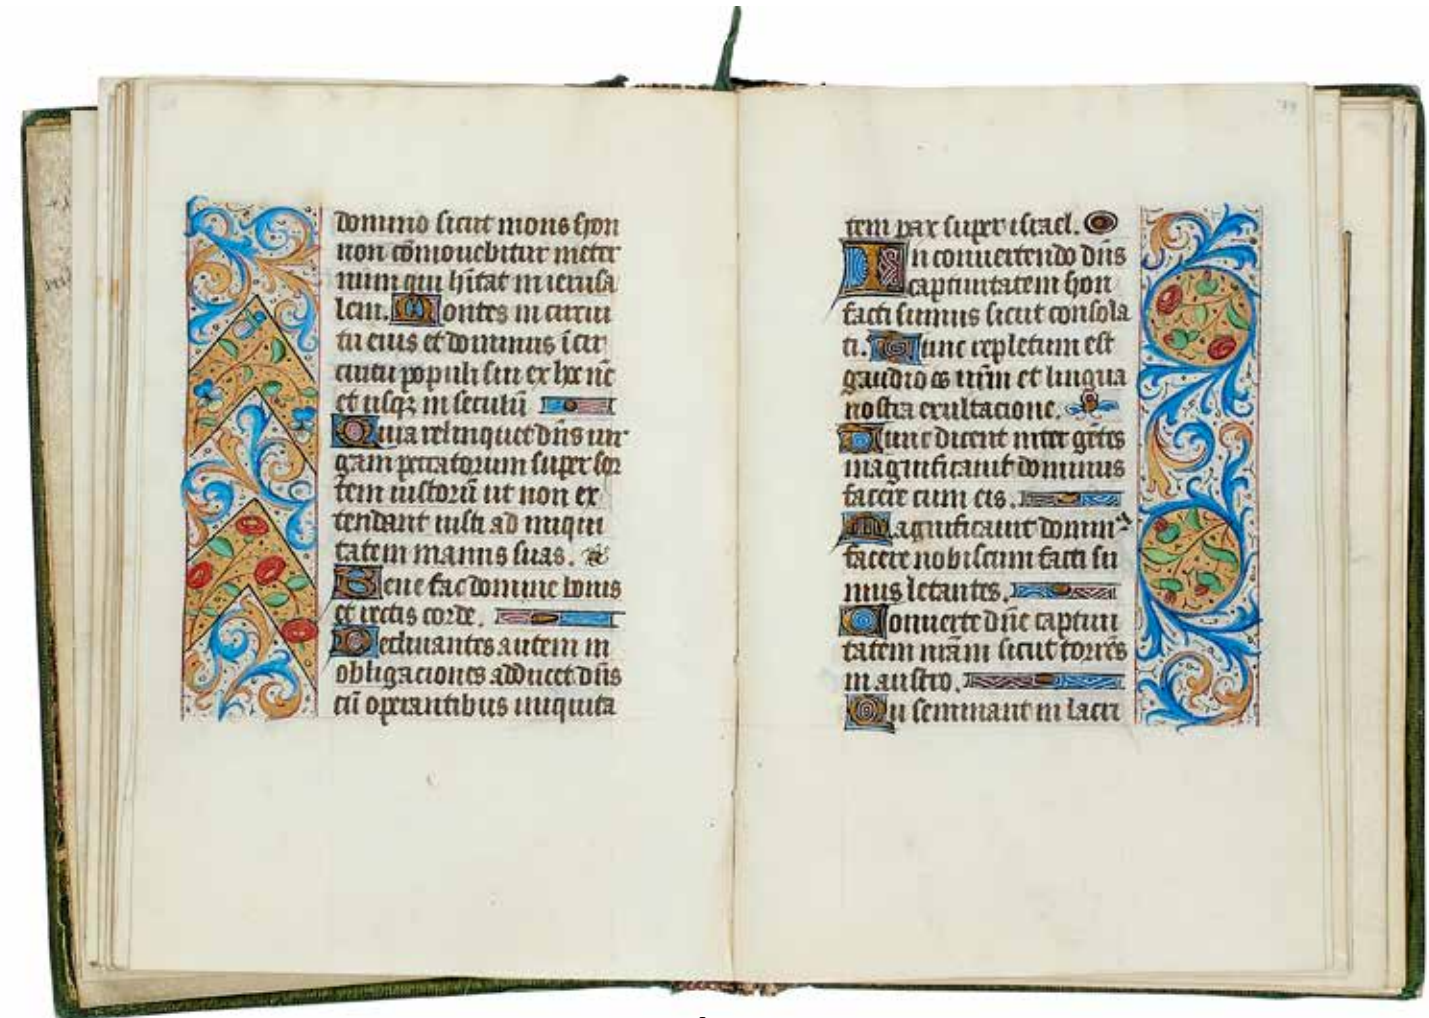 domino sicut mons syon
non cōmouebitur in eter
num qui hītat in ierusa
lem. Montes in circui
tu eius et dominus ī cir
cuitu populi sui ex hoc nc̄
et usqȝ in seculū
Quia relinquet dn̄s uir
gam peccatorum super sor
tem iustorū ut non ex
tendant iusti ad iniqui
tatem manus suas.
Bene fac domine bonis
et rectis corde.
Declinantes autem in
obligaciones adducet dn̄s
cū operantibus iniquita
tem pax super israel.
In conuertendo dn̄s
captiuitatem syon
facti sumus sicut consola
ti. Tunc repletum est
gaudio os nr̄m et lingua
nostra exultacione.
Tunc dicent inter gētes
magnificauit dominus
facere cum eis.
Magnificauit domin᷒
facere nobiscum facti su
mus letantes.
Conuerte dn̄e captiui
tatem nr̄am sicut torrēs
in austro.
Qui seminant in lacri